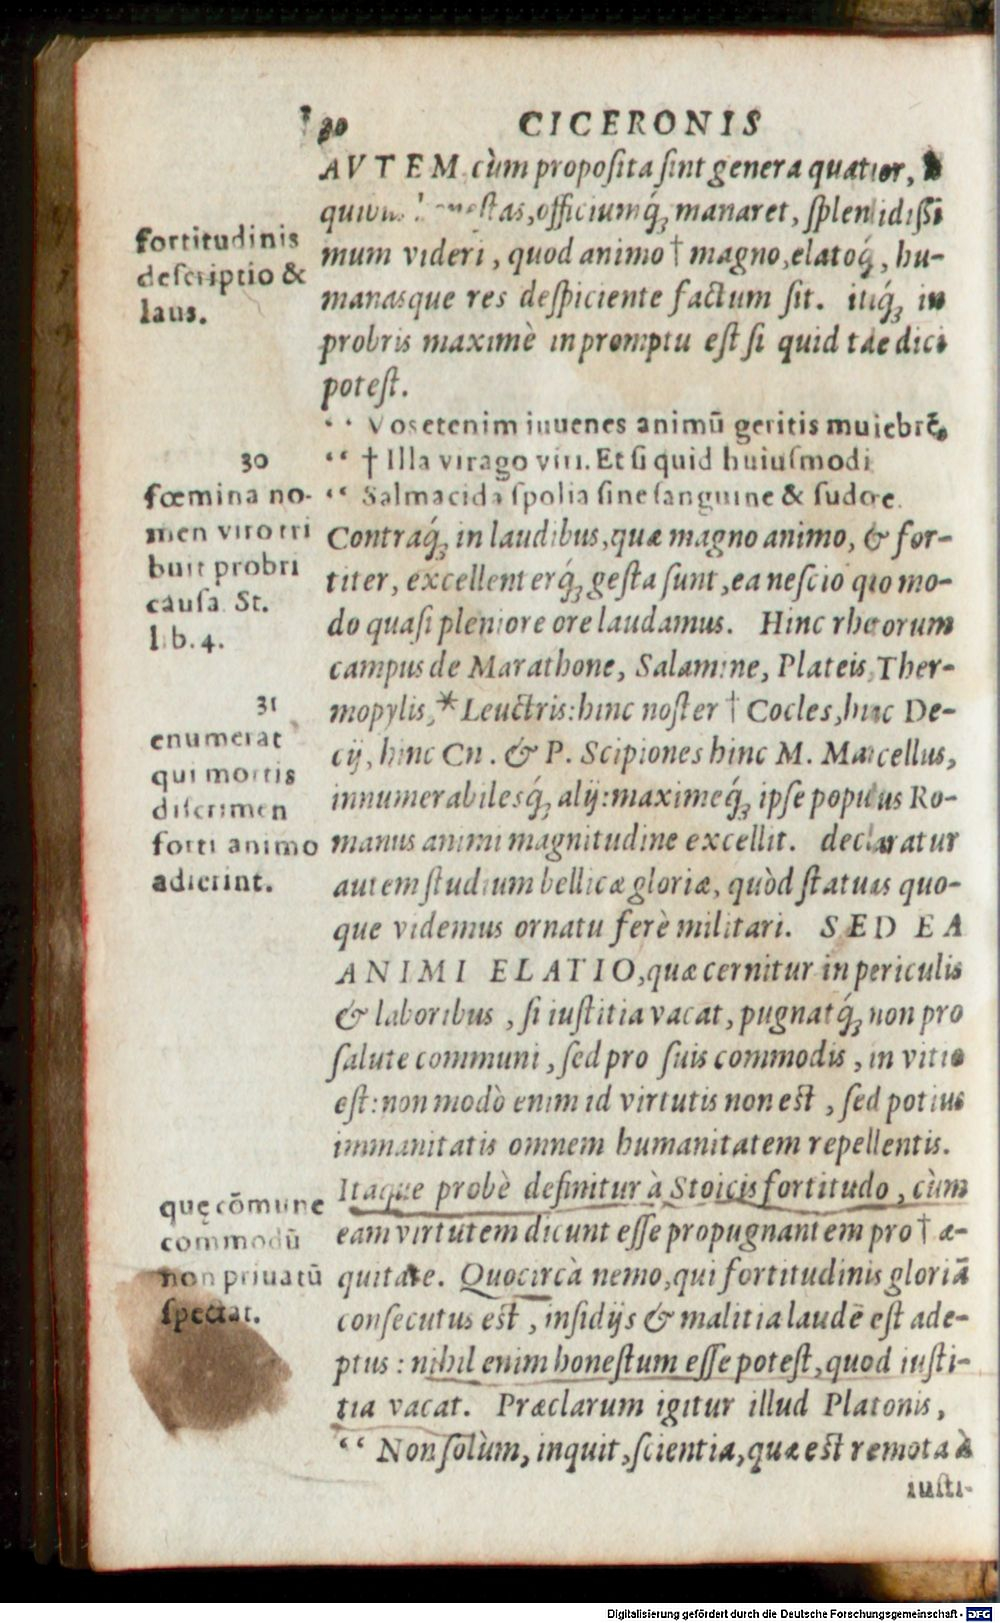 30 CICERONIS
AVTEM cùm proposita sint genera quatuor, à
officiumq́ꝫ manaret, splendidissi
mum videri, quod animo † magno, elatoq́ꝫ, hu-
manasque res despiciente factum sit. itáq́ꝫ in
probris maximè in promptu est si quid tae dici
potest.
“ Vosetenim iuuenes animū geritis muiebrē,
“ † Illa virago viri. Et si quid huiusmodi
“ Salmacida spolia sine sanguine & sudore.
Contraq́ꝫ in laudibus, quæ magno animo, & for-
titer, excellenterq́ꝫ gesta sunt, ea nescio quo mo-
do quasi pleniore ore laudamus. Hinc rhetorum
campus de Marathone, Salamine, Plateis, Ther-
mopylis, * Leuctris: hinc noster † Cocles, hinc De-
cij, hinc Cn. & P. Scipiones hinc M. Marcellus,
innumerabilesq́ꝫ alij: maximeq́ꝫ ipse populus Ro-
manus animi magnitudine excellit. declaratur
autem studium bellicæ gloriæ, quòd statuas quo-
que videmus ornatu ferè militari. SED EA
ANIMI ELATIO, quæ cernitur in periculis
& laboribus, si iustitia vacat, pugnatq́ꝫ non pro
salute communi, sed pro suis commodis, in vitio
est: non modò enim id virtutis non est, sed potius
immanitatis omnem humanitatem repellentis.
Itaque probè definitur à Stoicis fortitudo, cùm
eam virtutem dicunt esse propugnantem pro † æ-
quitate. Quocircà nemo, qui fortitudinis gloriā
consecutus est, insidijs & malitia laudē est ade-
ptus: nihil enim honestum esse potest, quod iusti-
tia vacat. Præclarum igitur illud Platonis,
“ Non solùm, inquit, scientia, quæ est remota à
iusti-
fortitudinis
descriptio &
laus.
30
fœmina no-
men viro tri
buit probri
causa. St.
lib. 4.
31
enumerat
qui mortis
discrimen
forti animo
adierint.
quę cōmune
commodū
non priuatū
spectat.
Digitalisierung gefördert durch die Deutsche Forschungsgemeinschaft - DFG